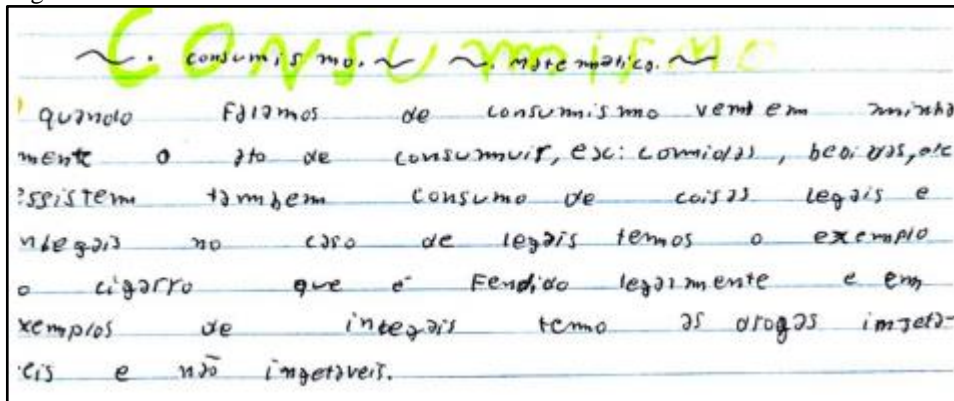 Consumismo
~. consumismo. ~ ~. matematico. ~
quando falamos de consumismo vemt em minha
mente o ato de consumuir, exc: comidas, bebidas, etc
essistem tambem consumo de coisas legais e
inlegais no caso de legais temos o exemplo
o cigarro que é Fendido legarmente e em
xemplos de inlegais temo as drogas imjeta-
eis e não injetaveis.